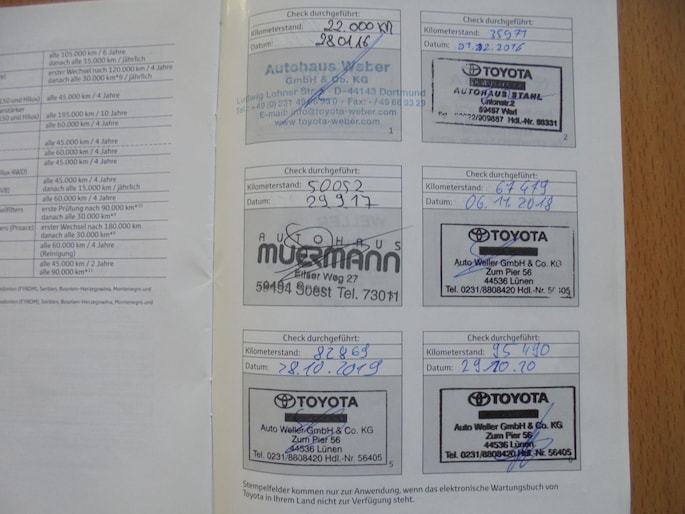 alle 105.000 km / 6 Jahre
danach alle 15.000 km / jährlich
erster Wechsel nach 120.000 km / 4 Jahre
danach alle 30.000 km*⁹ / jährlich
(150 und Hilux)
alle 45.000 km / 4 Jahre
alle 195.000 km / 10 Jahre
(150 und Hilux)
alle 60.000 km / 4 Jahre
alle 45.000 km / 4 Jahre
alle 60.000 km / 4 Jahre
alle 45.000 km / 4 Jahre
alle 45.000 km / 4 Jahre
danach alle 15.000 km / jährlich
alle 60.000 km / 4 Jahre
erste Prüfung nach 90.000 km
danach alle 30.000 km
(Proace)
erster Wechsel nach 180.000 km
danach alle 30.000 km
alle 60.000 km / 4 Jahre
(Reinigung)
alle 45.000 km / 2 Jahre
alle 90.000 km
(FYROM), Serbien, Bosnien-Herzegowina, Montenegro und
Serbien, Bosnien-Herzegowina, Montenegro und
Check durchgeführt:
Kilometerstand: 22.000 KM
Datum: 28.01.16
Autohaus Weber
GmbH & Co. KG
D-44143 Dortmund
E-mail: info@toyota-weber.com
www.toyota-weber.com
1
Check durchgeführt:
Kilometerstand: 35971
Datum: 2016
TOYOTA
AUTOHAUS STAHL
Unionstr.2
59457 Werl
Hdl.-Nr. 98331
2
Check durchgeführt:
Kilometerstand: 50052
Datum: 29.9.17
AUTOHAUS
MUERMANN
Weg 27
59494 Soest Tel. 73011
Check durchgeführt:
Kilometerstand: 67479
Datum: 06.11.2018
TOYOTA
Auto Weller GmbH & Co. KG
Zum Pier 56
44536 Lünen
Tel. 0231/8808420 Hdl.-Nr. 56405
Check durchgeführt:
Kilometerstand: 82869
Datum: 28.10.2019
TOYOTA
Auto Weller GmbH & Co. KG
Zum Pier 56
44536 Lünen
Tel. 0231/8808420 Hdl.-Nr. 56405
5
Check durchgeführt:
Kilometerstand: 95490
Datum: 29.10.20
TOYOTA
Auto Weller GmbH & Co. KG
Zum Pier 56
44536 Lünen
Tel. 0231/8808420 Hdl.-Nr. 56405
6
Stempelfelder kommen nur zur Anwendung, wenn das elektronische Wartungsbuch von
Toyota in Ihrem Land nicht zur Verfügung steht.